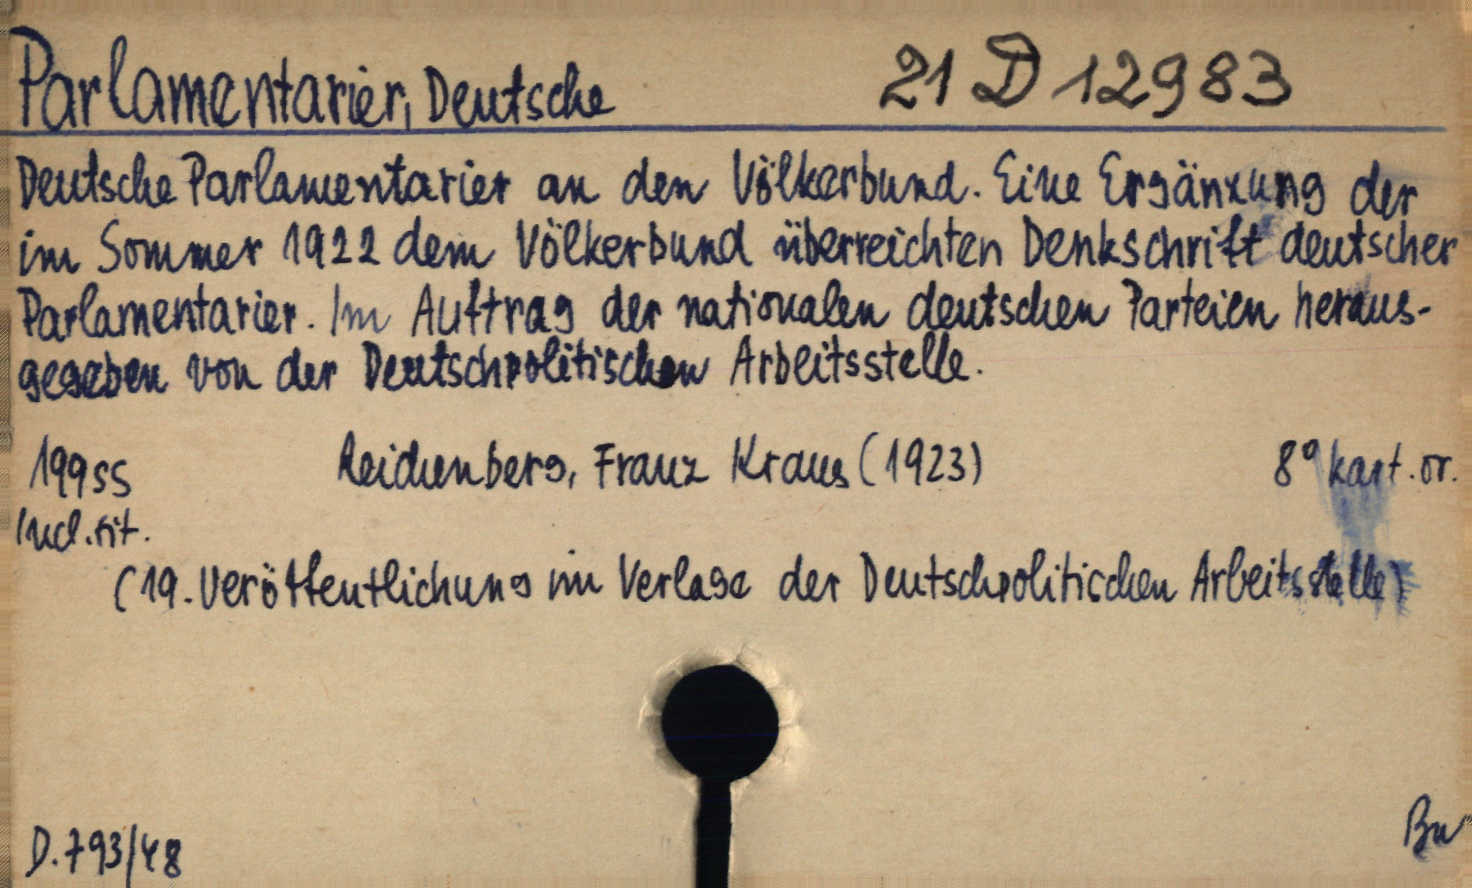 Parlamentarier, Deutsche 21 D 12983
Deutsche Parlamentarier an den Völkerbund. Eine Ergänzung der
im Sommer 1922 dem Völkerbund überreichten Denkschrift deutscher
Parlamentarier. Im Auftrag der nationalen deutschen Parteien heraus-
gegeben von der Deutschpolitischen Arbeitsstelle.
199 SS Reichenberg, Franz Kraus (1923) 8° kart. or.
Incl. tit.
(19. Veröffentlichung im Verlage der Deutschpolitischen Arbeitsstelle)
D. 793/48 Bu